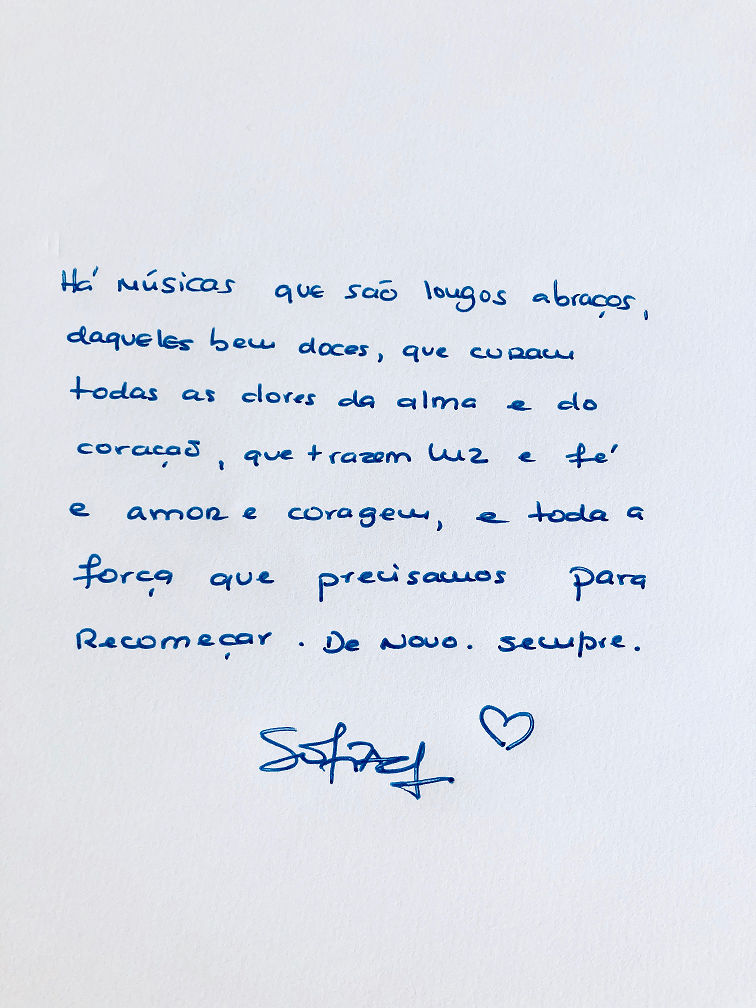 Há músicas que são longos abraços,
daqueles bem doces, que curam
todas as dores da alma e do
coração, que trazem luz e fé
e amor e coragem, e toda a
força que precisamos para
Recomeçar. De Novo. sempre.